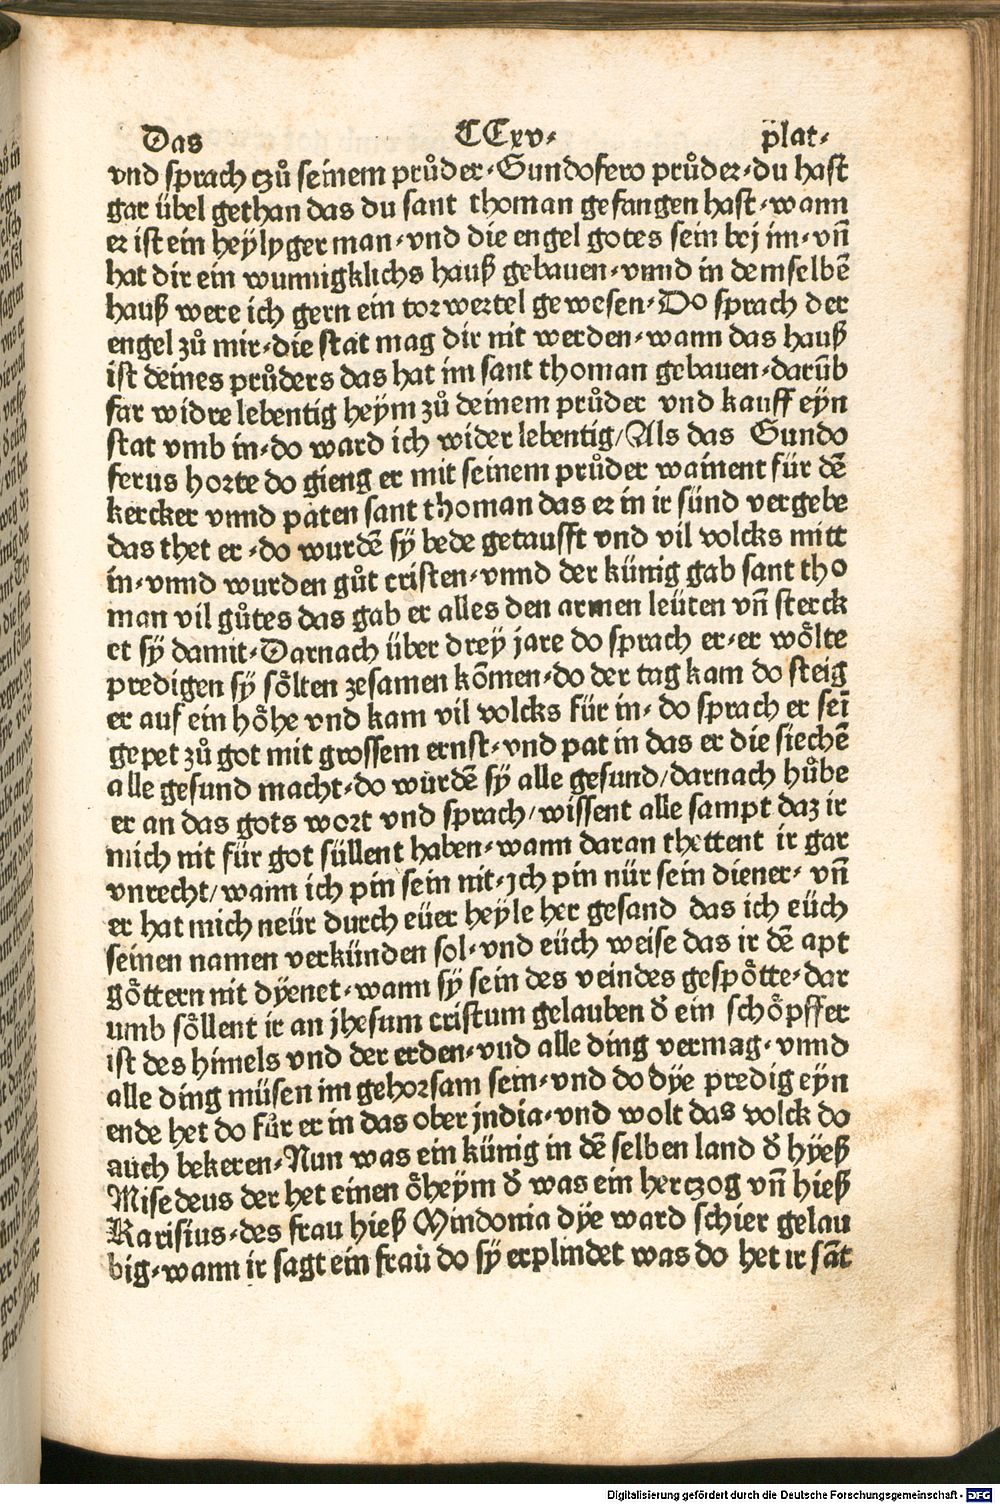 Das CCxv· plat·
vnd sprach czů seinem průder·Gundofero průder·du hast
gar übel gethan das du sant thoman gefangen hast·wann
er ist ein heÿlyger man·vnd die engel gotes sein bej im·vn̄
hat dir ein wunnigklichs hauß gebauen·vnnd in demselbē
hauß were ich gern ein torwertel gewesen·Do sprach der
engel zů mir·die stat mag dir nit werden·wann das hauß
ist deines průders das hat im sant thoman gebauen·darūb
far widre lebentig heÿm zů deinem průder vnd kauff eÿn
stat vmb in·do ward ich wider lebentig/Als das Gundo
ferus horte do gieng er mit seinem průder wainent für dē
kercker vnnd paten sant thoman das er in ir sünd vergebe
das thet er·do wurdē sÿ bede getaufft vnd vil volcks mitt
in·vnnd wurden gůt cristen·vnnd der künig gab sant tho
man vil gůtes das gab er alles den armen leüten vn̄ sterck
et sÿ damit·Darnach über dreÿ jare do sprach er·er wȯlte
predigen sÿ sȯlten zesamen kōmen·do der tag kam do steig
er auf ein hȯhe vnd kam vil volcks für in·do sprach er seī
gepet zů got mit grossem ernst·vnd pat in das er die siechē
alle gesund macht·do wurdē sÿ alle gesund/darnach hůbe
er an das gots wort vnd sprach/wissent alle sampt daz ir
mich nit für got süllent haben·wann daran thettent ir gar
vnrecht/wann ich pin sein nit·jch pin nür sein diener·vn̄
er hat mich neür durch eüer heyle her gesand das ich eüch
seinen namen verkünden sol·vnd eüch weise das ir dē apt
gȯttern nit dÿenet·wann sÿ sein des veindes gespȯtte·dar
umb sȯllent ir an jhesum cristum gelauben đ ein schȯpffer
ist des himels vnd der erden·vnd alle ding vermag·vnnd
alle ding müsen im gehorsam sein·vnd do dÿe predig eÿn
ende het do fůr er in das ober jndia·vnd wolt das volck do
auch bekeren·Nun was ein künig in dē selben land đ hÿeß
Misedeus der het einen ȯheÿm đ was ein herczog vn̄ hieß
Karisius·des frau hieß Mindonia dÿe ward schier gelau
big·wann ir sagt ein fraů do sÿ erplindet was do het ir sāt
Digitalisierung gefördert durch die Deutsche Forschungsgemeinschaft - DFG